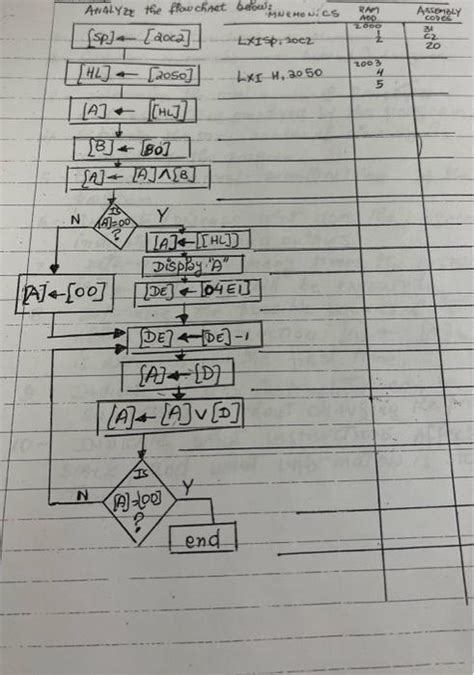 ANALYZE the flowchart below: MNEMONICS RAM ADD ASSEMBLY CODES
[SP] ← [20C2] LXISP, 20C2 2000 31
1 C2
2 20
[HL] ← [2050] LXI H, 2050 2003
4
5
[A] ← [[HL]]
[B] ← [80]
[A] ← [A] ∧ [B]
Is
N [A]=00 Y
?
[A] ← [[HL]]
Display "A"
[A] ← [00] [DE] ← [04E1]
[DE] ← [DE] -1
[A] ← [D]
[A] ← [A] ∨ [D]
Is
N [A]=[00] Y
?
end